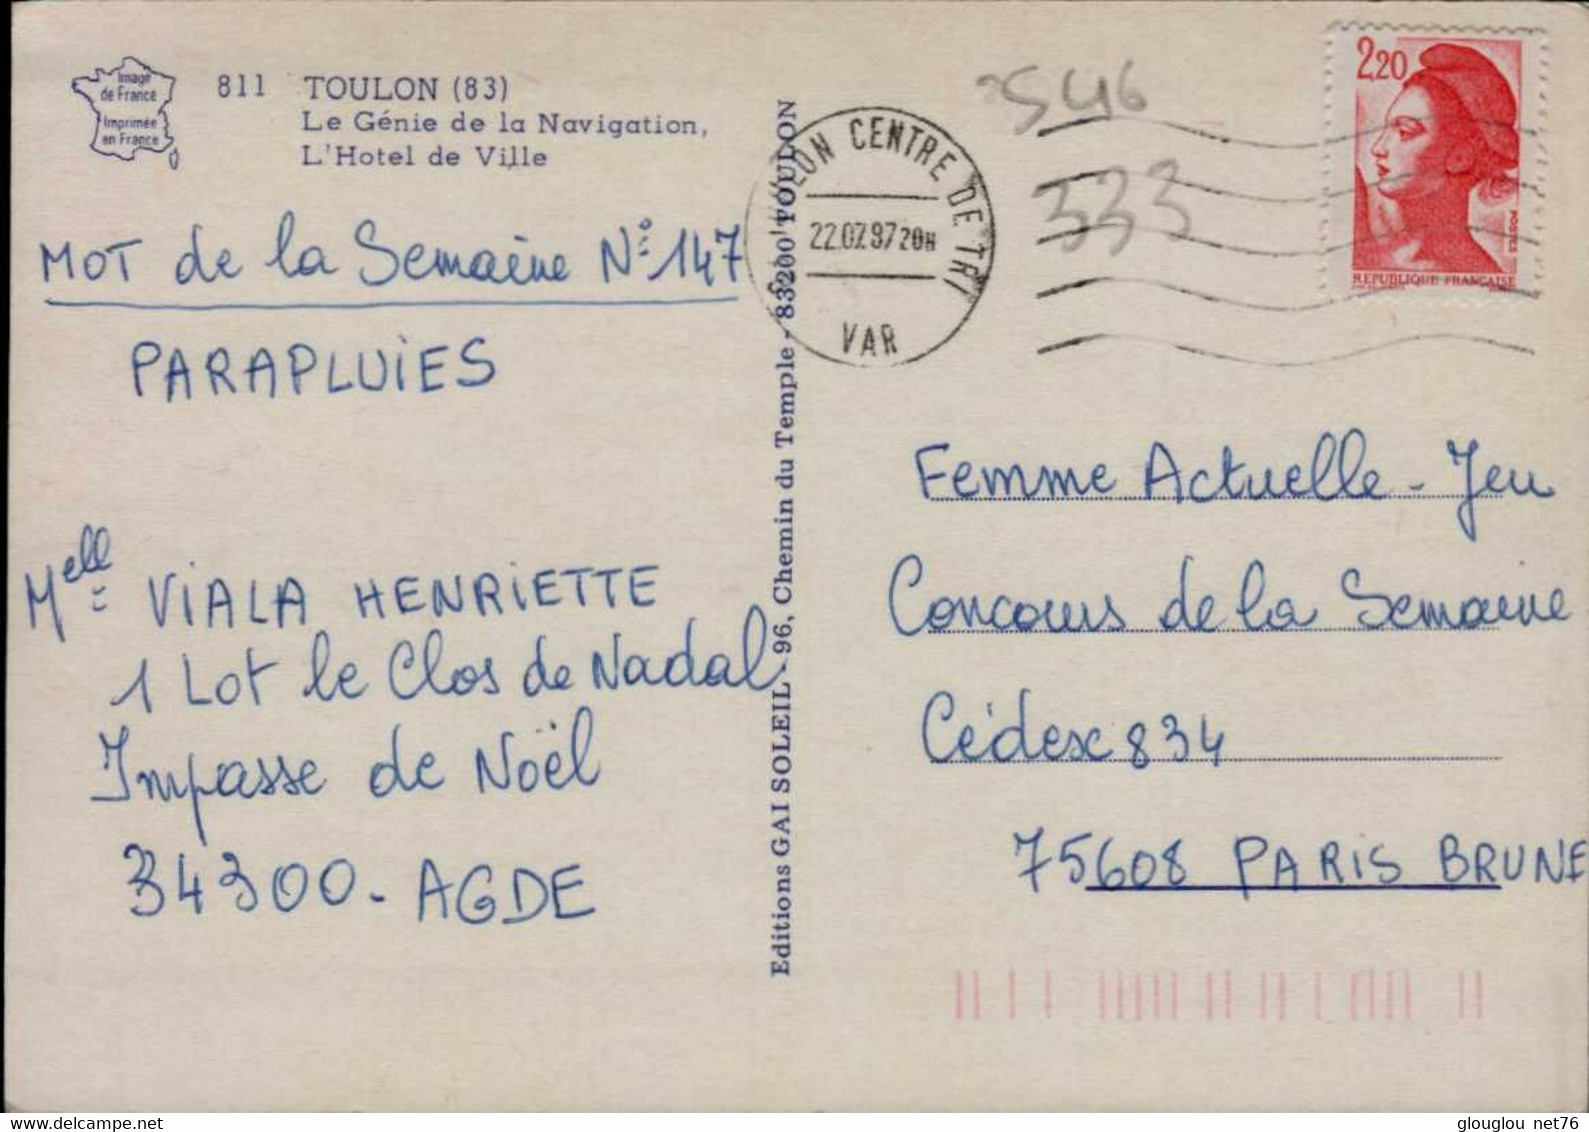 Image
de France
Imprimée
en France
811 TOULON (83)
Le Génie de la Navigation,
L'Hotel de Ville
MOT de la Semaine N° 147
PARAPLUIES
Mell VIALA HENRIETTE
1 Lot le Clos de Nadal
Impasse de Noël
34300 - AGDE
Editions GAI SOLEIL - 96, Chemin du Temple - 83200 TOULON
TOULON CENTRE DE TRI
20H
VAR
546
333
2,20
POSTES
REPUBLIQUE FRANÇAISE
Femme Actuelle - Jeu
Concours de la Semaine
Cédex 834
75608 PARIS BRUNE
glouglou net76